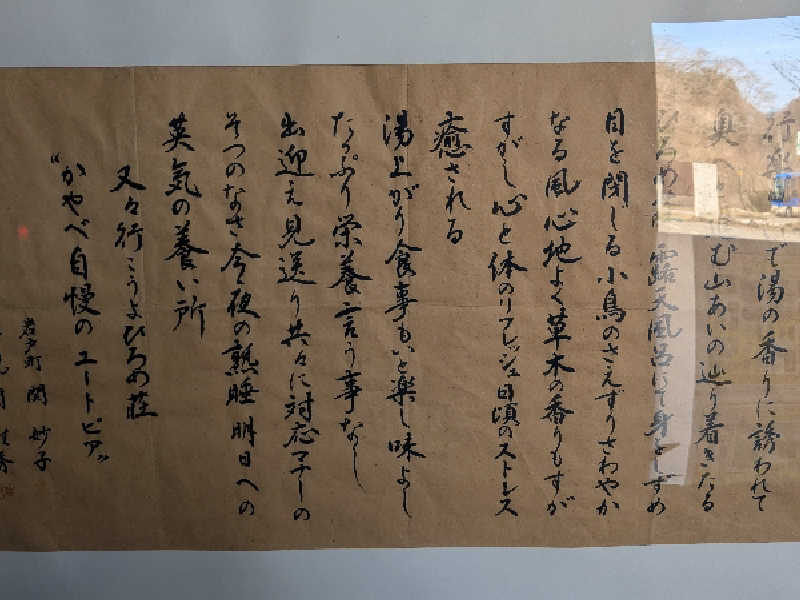 行楽 で湯の香りに誘われて
奥へ む山あいの辿り着きたる
ひろめ 露天風呂にて身をしずめ
目を閉じる小鳥のさえずりさわやか
なる風心地よく草木の香りもすが
すがし心と体のリフレッシュ日頃のストレス
癒される
湯上がり食事もいと楽し味よし
たっぷり栄養言う事なし
出迎え見送り共々に対応マナーの
そつのなさ今夜の熟睡明日への
英気の養い所
又々行こうよひろめ荘
“かやべ自慢のユートピア”
岩戸町 関 妙子